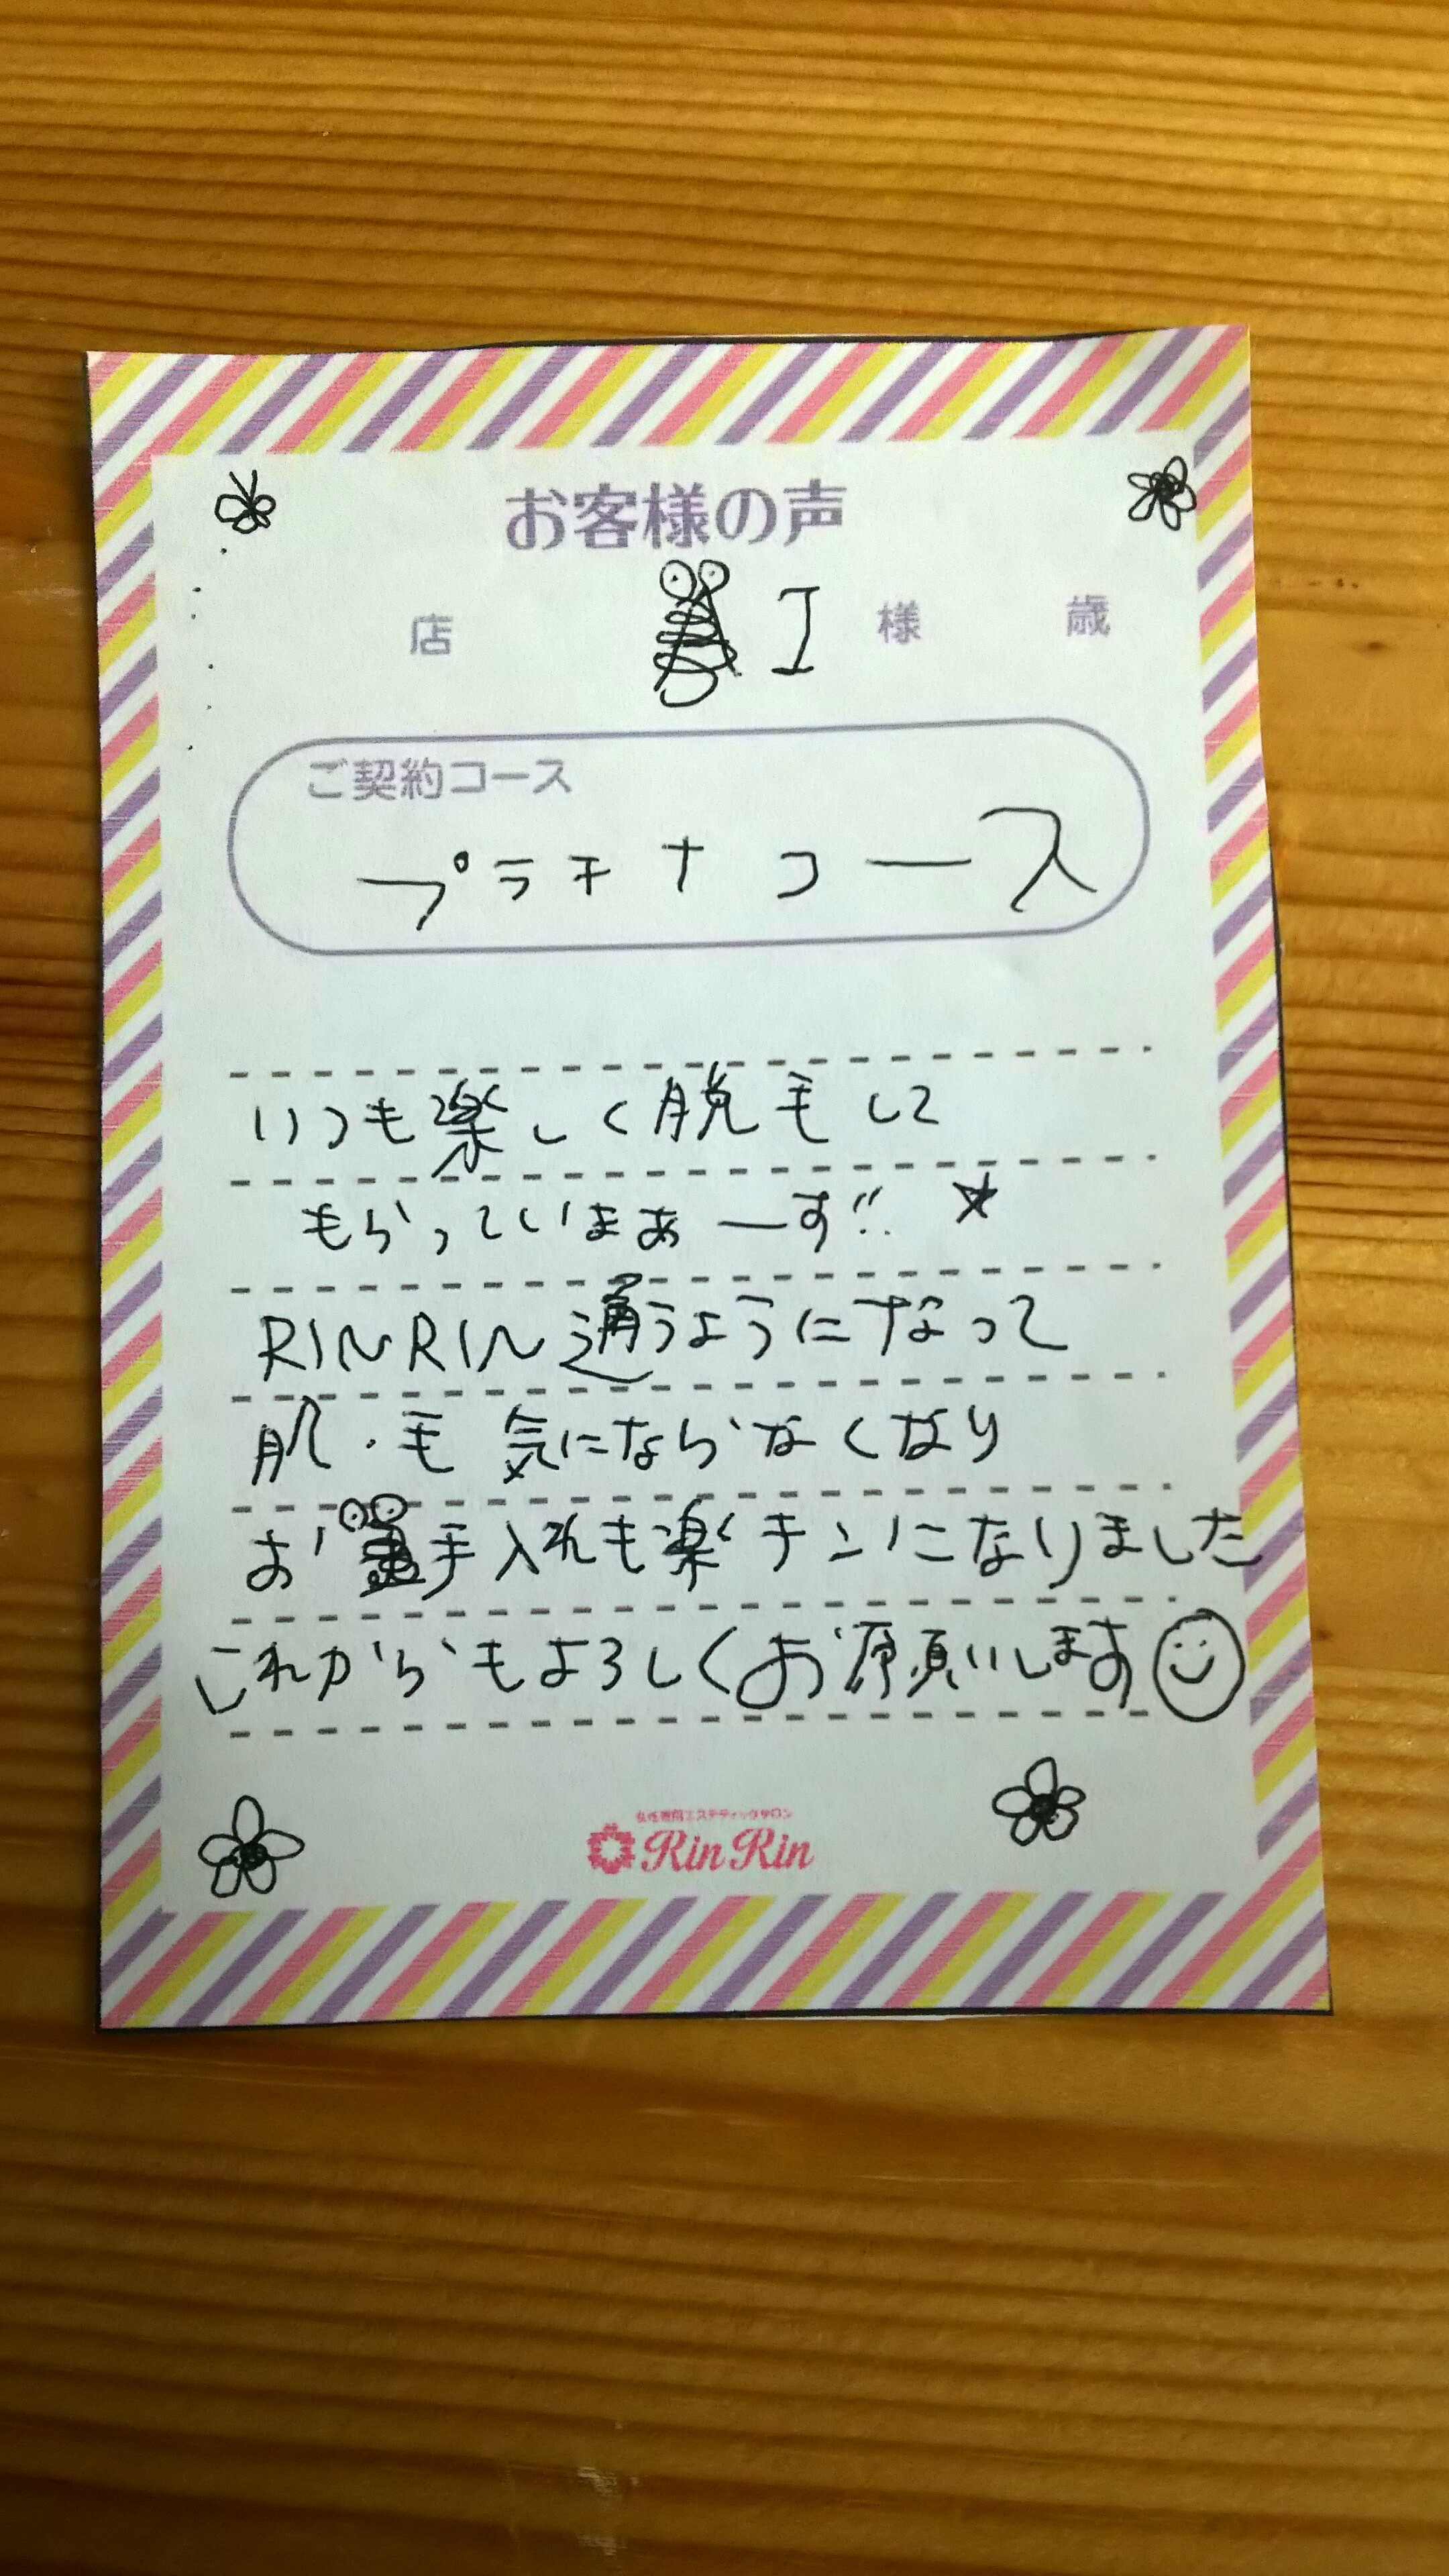 お客様の声
店 I 様 歳
ご契約コース
プラチナコース
いつも楽しく脱毛して
もらっていまぁーす!! ☆
RINRIN通うようになって
肌・毛 気にならなくなり
お手入れも楽チンになりました
これからもよろしくお願いします
女性専用エステティックサロン
RinRin